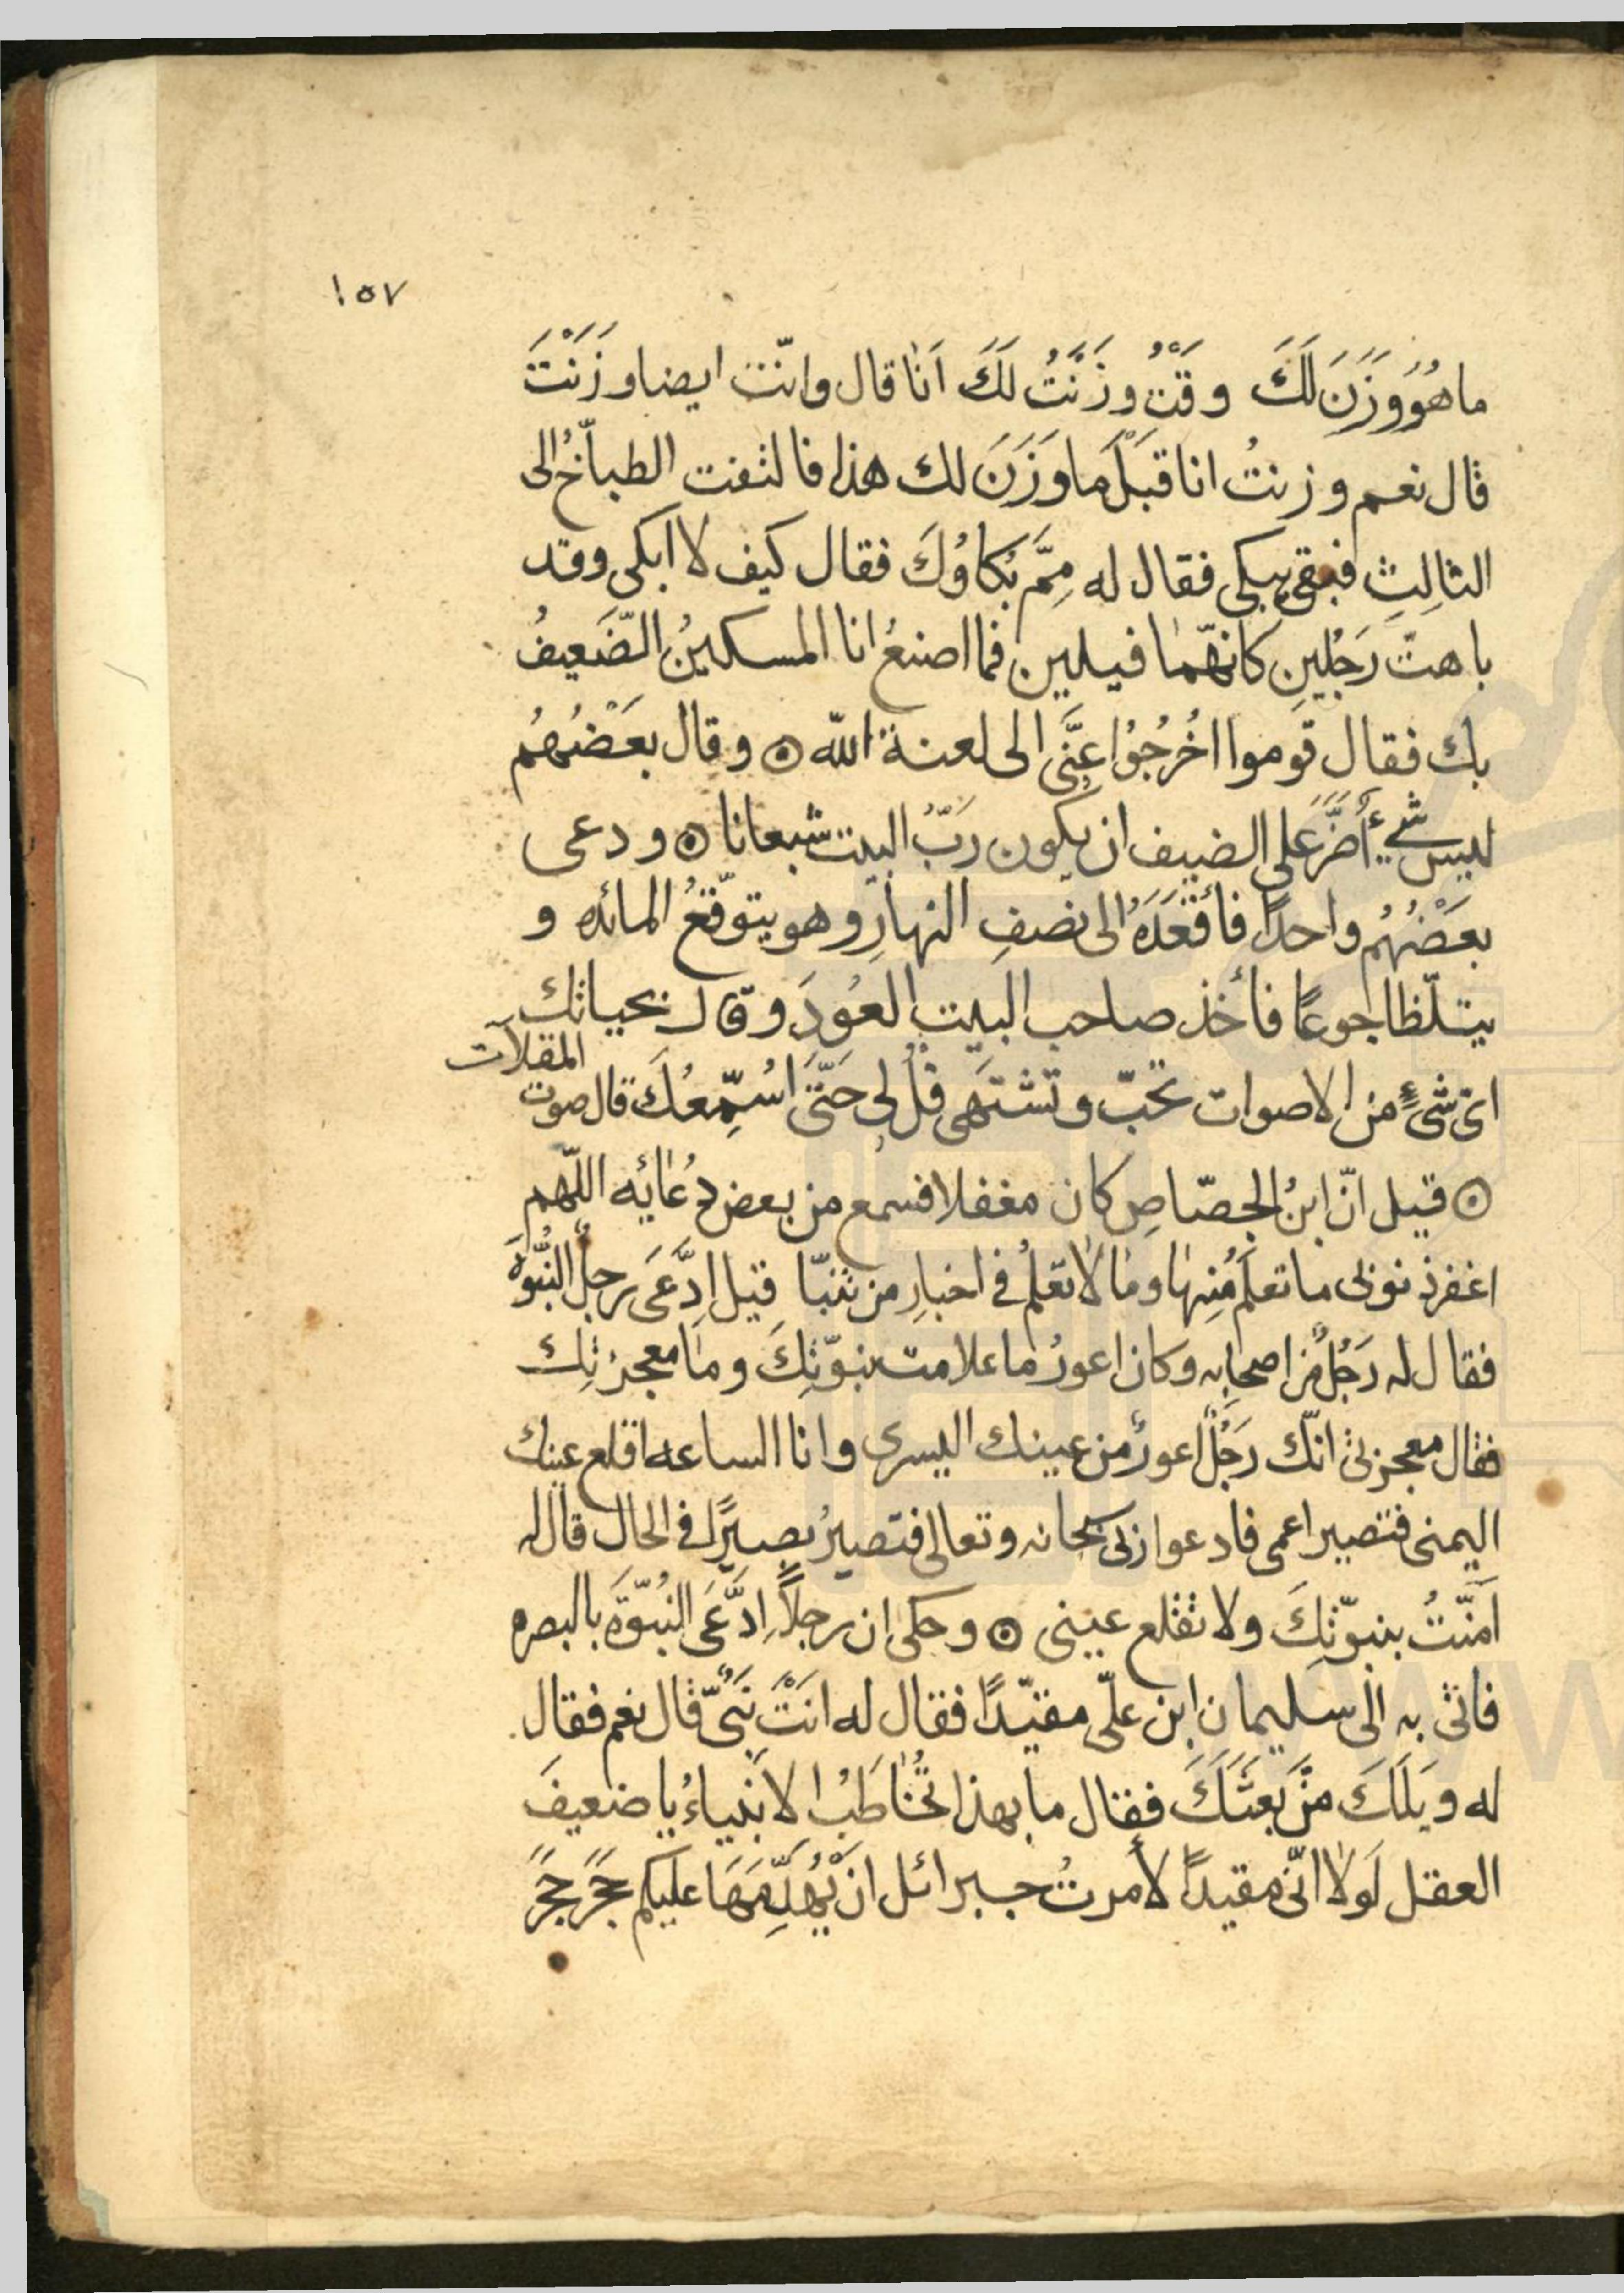 ١٥٧
ما هُوَ وَزَنَ لَكَ وقتٌ وزَنَتُ لَكَ اَنَا قال وانّت ايضا وزَنْتَ
قال نعم وزنتُ انا قَبْلَ ما وَزَنَ لك هذا فالتفت الطباّخُ الى
الثالِثِ فبقى يبكى فقال له مِمَّ بُكاوُكَ فقال كيف لا ابكى وقد
باهتّ رَجُلَينِ كانهّما فيلين فما اصنعُ انا المسكينُ الضّعيفُ
بك فقال قوموا اخُرجُوُا عنَّى الى لعنة الله ۞ وقال بعَضْهُم
ليس شىءٌ أضَرَّ على الضيف ان يكون ربُّ البيت شبعانا ۞ ودعى
بعَضْهُم واحدًا فأقْعَدَهُ الى نصفِ النهارِ وهو يتوّقعُ المائده و
يتلّظا جوعًا فأخذ صاحب البيت العُودَ وقال بحياتك
اىّ شىءٍ من الاصوات تحبّ وتشتهى قُل لى حَتَّى اسُمِّعُكَ قال صوت
المقلآت
۞ قيل انّ ابنُ الجصّاصِ كان مغفلا فسمع من بعض دُعائِه اللّهم
اغفر ذنوبى ما تعلَمُ مِنها وما لا تعلمُ فى اخبارِ من تنبّا قيل ادَّعَى رجلٌ النُّبوّةَ
فقال له رَجُلٌ من اصحابِه وكان اعورُ ما علامت نبوّتِكَ وما معجزتِك
فقال معجزتى انّك رَجُلٌ اعورٌ من عينك اليسرى وانا الساعه اقلع عينك
اليمنى فتصير اعمى فادعوا ربى سبحانه وتعالى فتصيرُ بصيرًا فى الحال قال له
آمنّتُ بنبوّتِكَ ولا تقلع عينى ۞ وحكى ان رجلاً ادَّعَى النبُّوّةَ بالبصره
فاتى به الى سليمان ابن علّى مقيّدًا فقال له انتْ نَبىٌّ قال نعم فقال
له ويَلَكَ منَّ بَعثَكَ فقال ما بهذا تُخاطَبُ الانبياءُ يا ضعيفَ
العقل لَولا انّى مقيدًا لأمرتُ جبرائل ان يُهدِّمَهَا عليكم حَجَر حَجَر